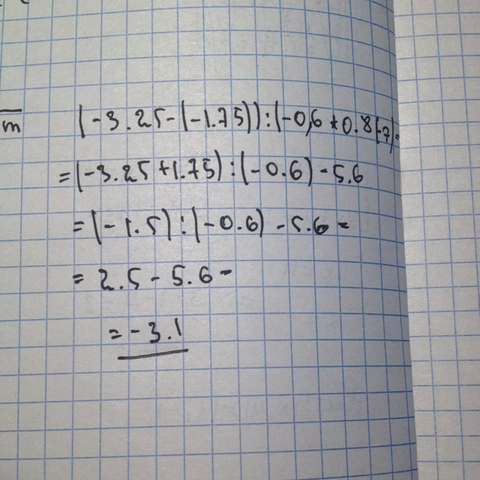 m
(-3.25-(-1.75)):(-0,6+0.8(-7)
=(-3.25+1.75):(-0.6)-5.6
=(-1.5):(-0.6)-5.6=
=2.5-5.6=
=-3.1